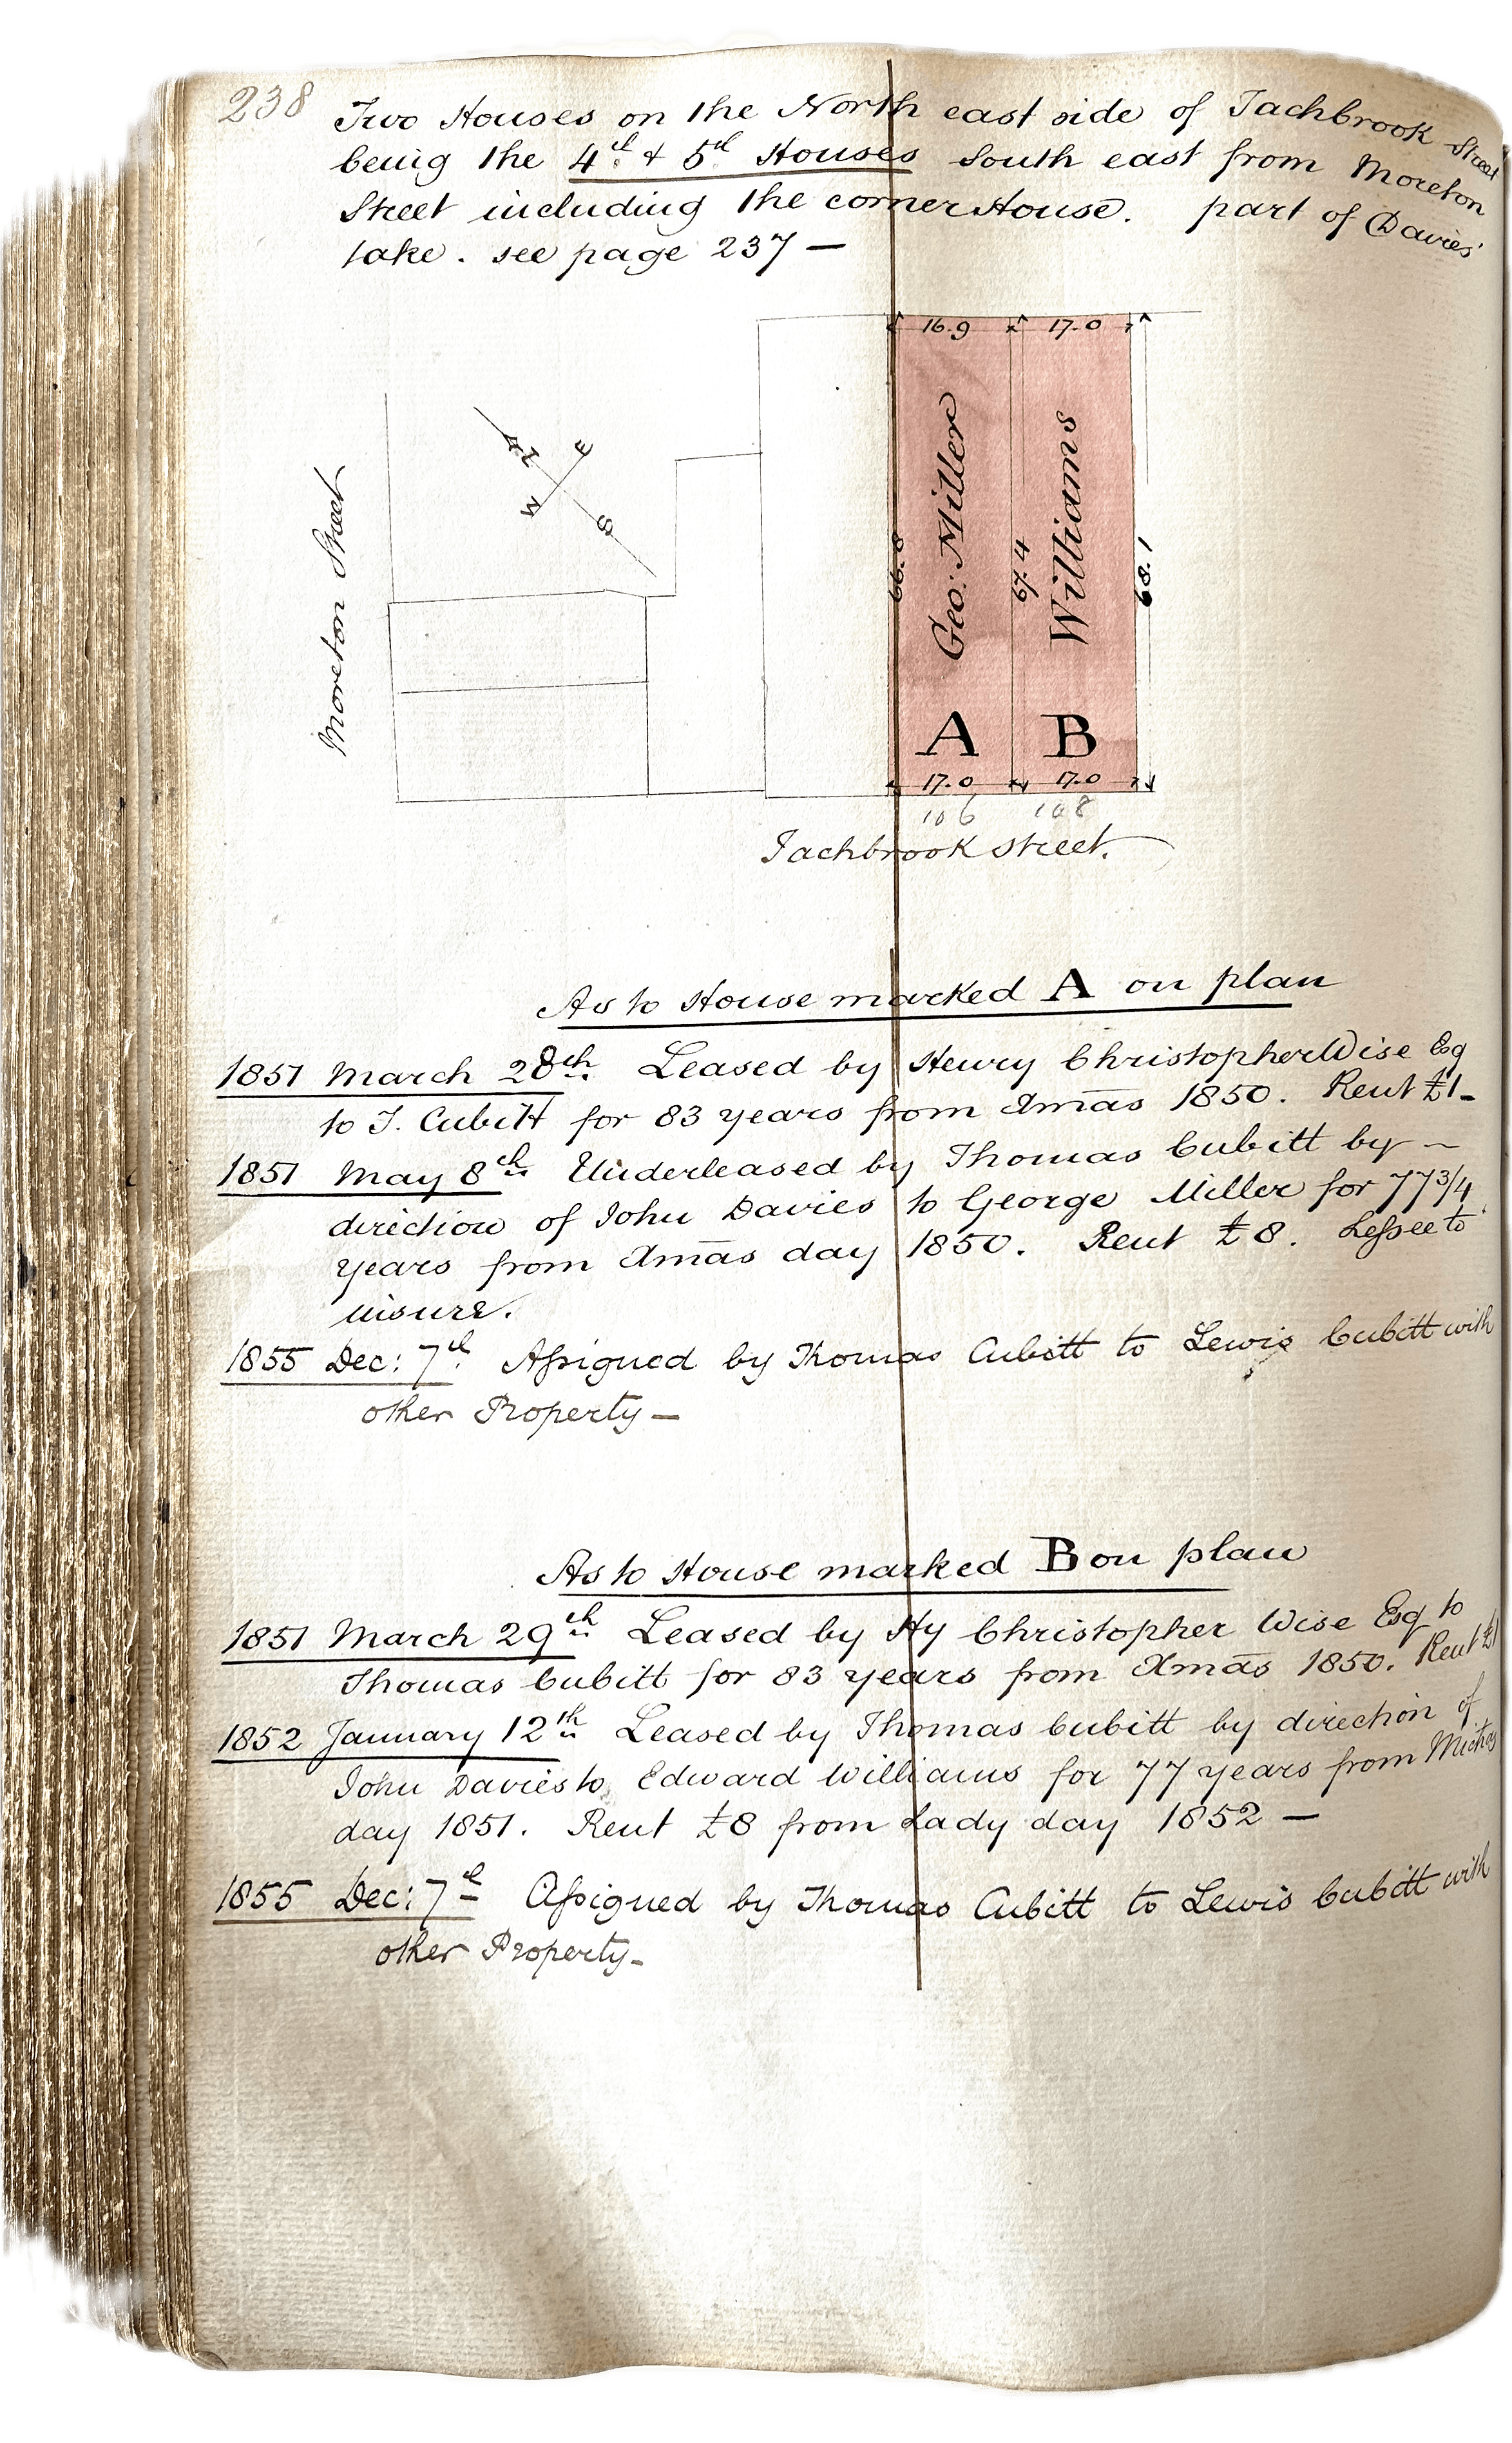 238
Two Houses on the North east side of Tachbrook Street
being the 4th & 5th Houses South east from Moreton
Street including the corner House. part of Davies'
take. see page 237 —
16.9 17.0
N E
W S
Moreton Street
66.8 Geo: Miller 67.4 Williams 68.1
A B
17.0 17.0
106 108
Tachbrook Street.
As to House marked A on plan
1851 March 28th. Leased by Henry Christopher Wise Esq
to T. Cubitt for 83 years from Xmas 1850. Rent £1_
1851 May 8th Underleased by Thomas Cubitt by —
direction of John Davies to George Miller for 77 3/4
years from Xmas day 1850. Rent £8. Lessee to
insure.
1855 Dec: 7th Assigned by Thomas Cubitt to Lewis Cubitt with
other Property —
As to House marked B on plan
1851 March 29th Leased by Hy Christopher Wise Esq to
Thomas Cubitt for 83 years from Xmas 1850. Rent £1
1852 January 12th Leased by Thomas Cubitt by direction of
John Davies to Edward Williams for 77 years from Michas
day 1851. Rent £8 from Lady day 1852 —
1855 Dec: 7th Assigned by Thomas Cubitt to Lewis Cubitt with
other Property_